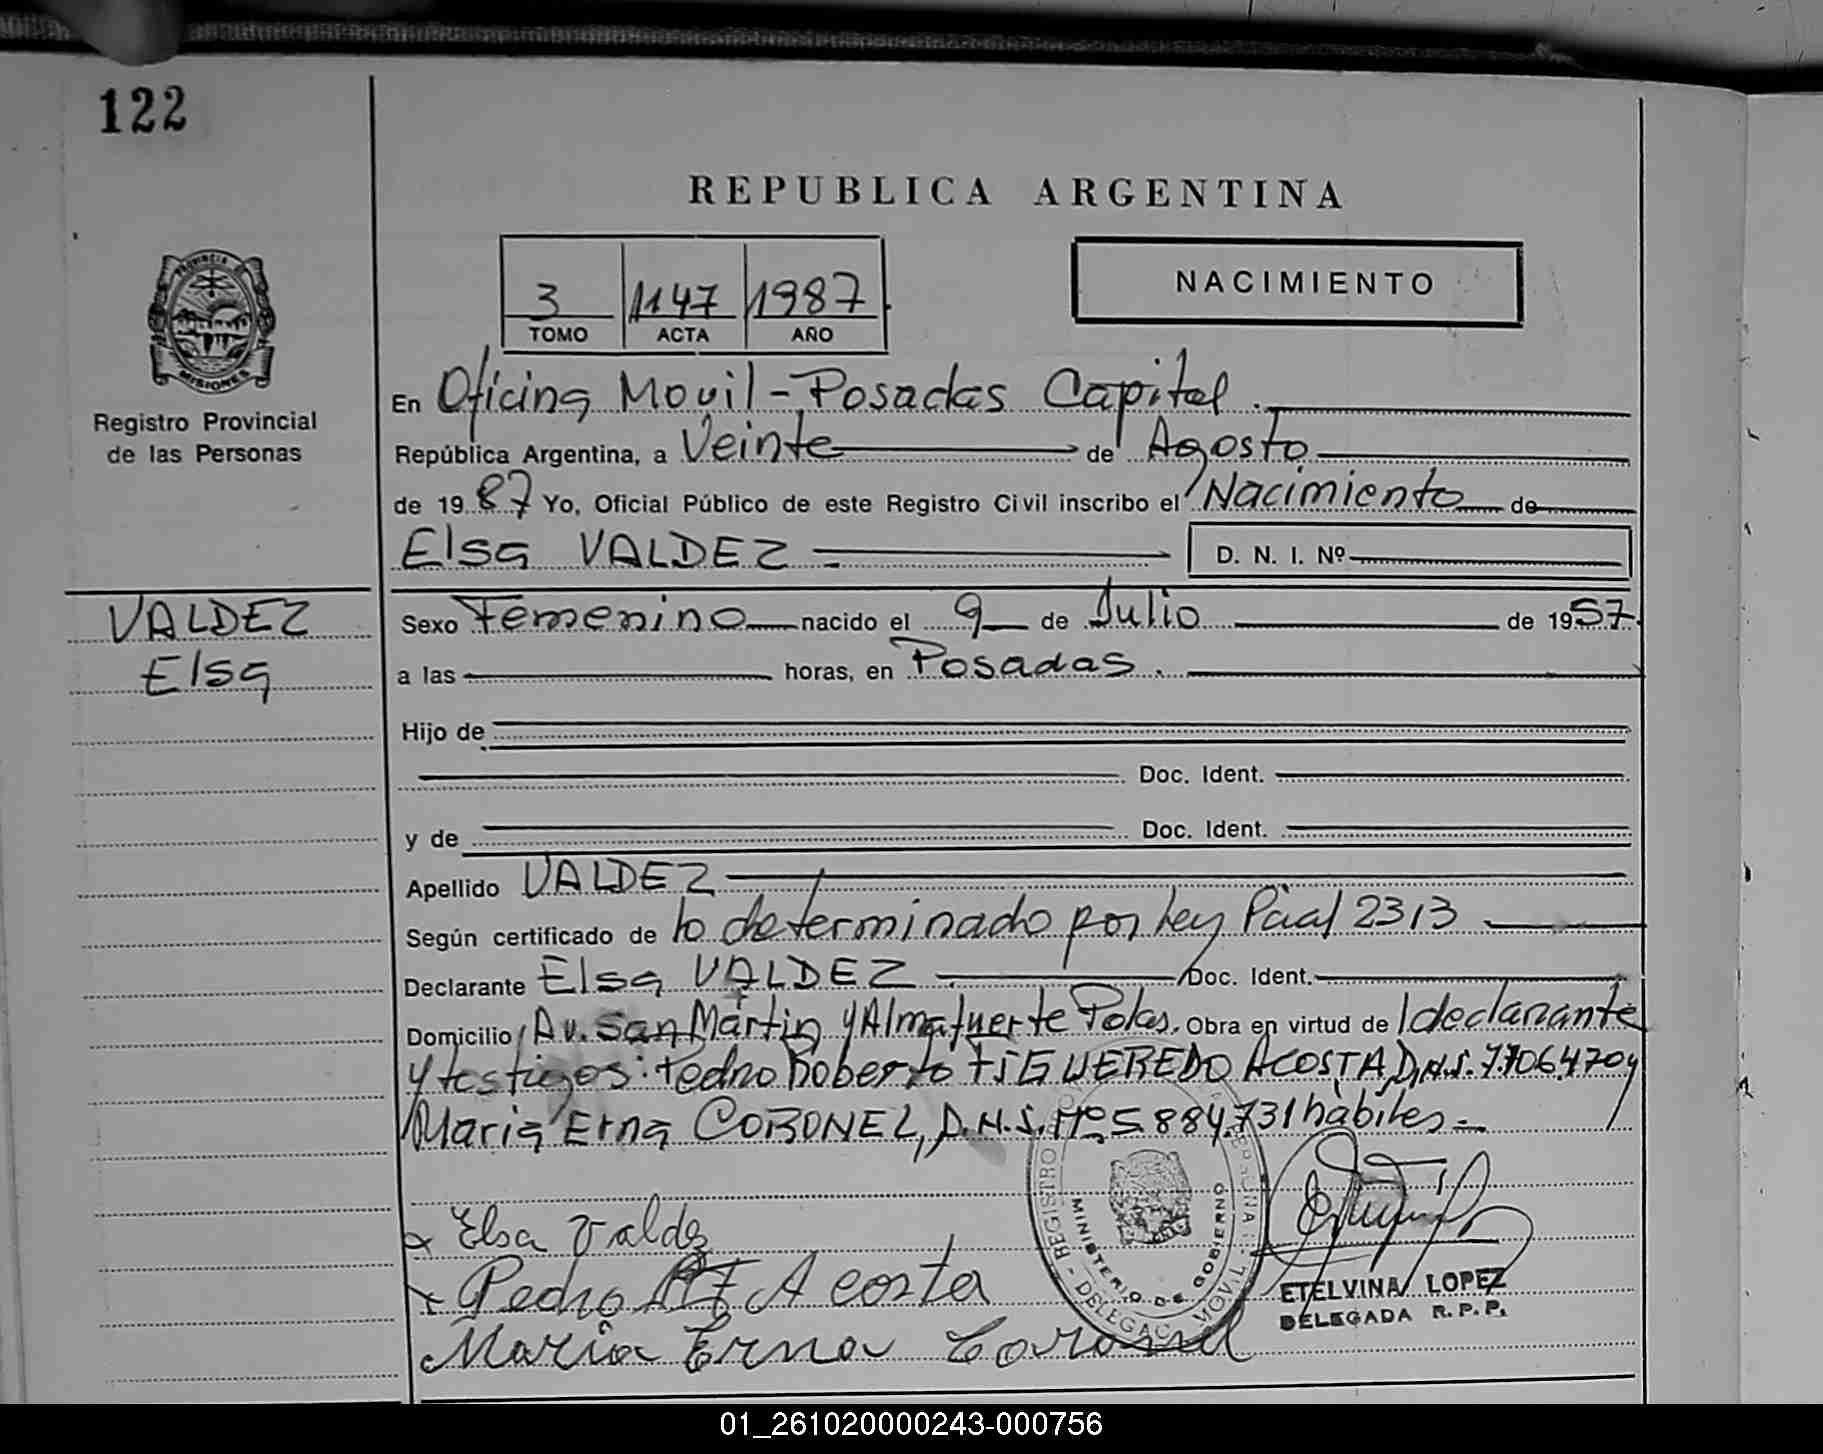 122
REPUBLICA ARGENTINA
3 1147 1987
TOMO ACTA AÑO
NACIMIENTO
PROVINCIA DE
MISIONES
Registro Provincial
de las Personas
En Oficina Movil - Posadas Capital.
República Argentina, a Veinte de Agosto
de 1987 Yo, Oficial Público de este Registro Civil inscribo el Nacimiento de
Elsa VALDEZ D. N. I. Nº
VALDEZ
Elsa
Sexo Femenino nacido el 9 de Julio de 1957
a las horas, en Posadas.
Hijo de
Doc. Ident.
y de Doc. Ident.
Apellido VALDEZ
Según certificado de lo determinado por ley Pcial 2313
Declarante Elsa VALDEZ Doc. Ident.
Domicilio Av. San Martin y Almafuerte Pdas. Obra en virtud de declarante
y testigos: Pedro Roberto FIGUEREDO ACOSTA, D.N.I. 7.706.470 y
Maria Erna CORONEL, D.N.I. Nº 5.884.731 hábiles.-
Elsa Valdez
Pedro Acosta
Maria Erna Coronel
REGISTRO
MINISTERIO DE GOBIERNO
MOVIL
ETELVINA LOPEZ
DELEGADA R.P.P.
01_261020000243-000756